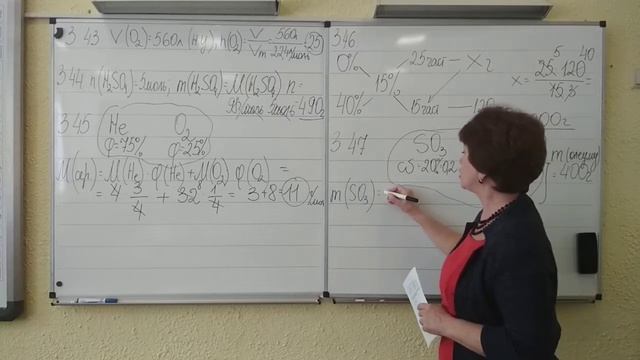 3 43 V(O₂)=560л (н.у.) n(O₂) = V/Vm = 560л/22,4 л/моль = 25
3 44 n(H₂SO₄)=5моль; m(H₂SO₄)=M(H₂SO₄) n=
98 г/моль 5моль=490г
3 45 He O₂
φ=75% φ=25%
M(ср.)=M(He) φ(He)+M(O₂) φ(O₂) =
= 4 3/4 + 32 1/4 = 3+8=11 г/моль
3 46
0% 25 чай — X г
15%
40% 15 чай — 120
x = 25 120 / 15 =
5 40
3 47 SO₃
ω=20%=0,2
m(олеуму)
=400г
m(SO₃)=